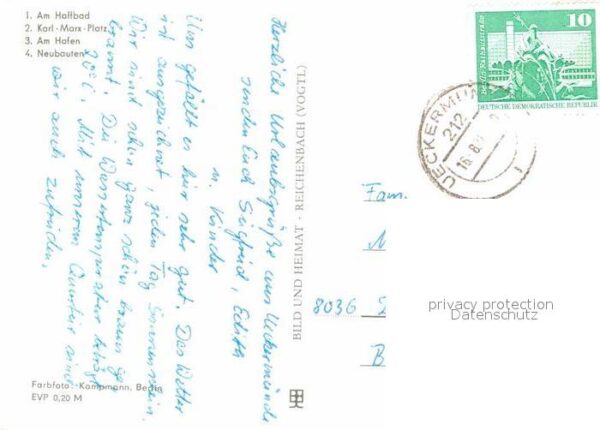 1. Am Haffbad
2. Karl-Marx-Platz
3. Am Hafen
4. Neubauten
Herzliche Urlaubsgrüße aus Ueckermünde
senden Euch Siegfried, Edith
u. Kinder
Uns gefällt es hier sehr gut. Das Wetter
ist ausgezeichnet, jeden Tag Sonnenschein.
Wir sind schon ganz schön braun ge
brannt. Die Wassertemperatur beträgt
20°C. Mit unserem Quartier sind
wir auch zufrieden.
Farbfoto: Kampmann, Berlin
EVP 0,20 M
BILD UND HEIMAT · REICHENBACH (VOGTL)
Berlin · Rathausstraße
10
DEUTSCHE DEMOKRATISCHE REPUBLIK
UECKERMÜN
212
16.8.
Fam.
8036
B
privacy protection
Datenschutz